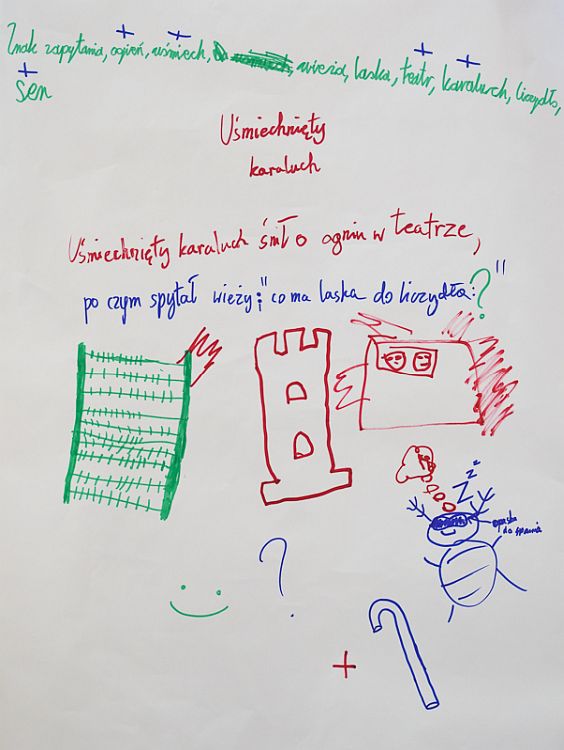 Znak zapytania, ogień, uśmiech, wieża, laska, teatr, karaluch, liczydło,
sen
Uśmiechnięty
karaluch
Uśmiechnięty karaluch śnił o ogniu w teatrze,
po czym spytał wieży: "co ma laska do liczydła?"
Zzz
opaska
do spania
?